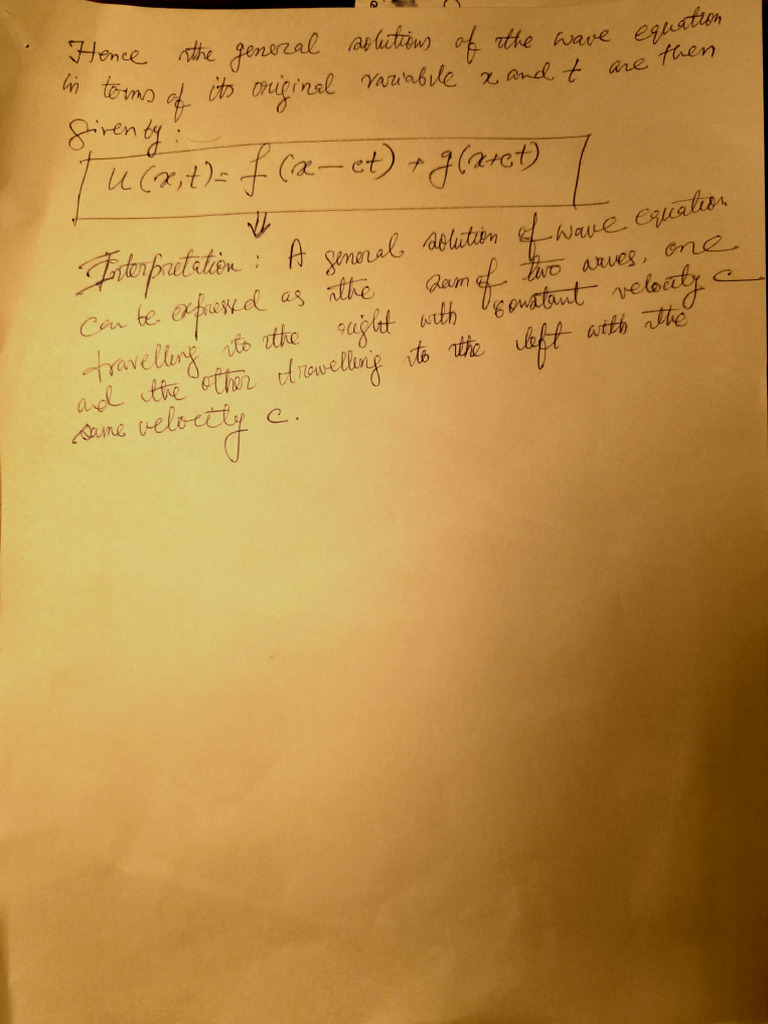 Hence the general solutions of the wave equation
in terms of its original variable x and t are then
given by :
u(x,t) = f(x-ct) + g(x+ct)
⇓
Interpretation : A general solution of wave equation
can be expressed as the sum of two waves, one
travelling to the right with constant velocity c
and the other travelling to the left with the
same velocity c.